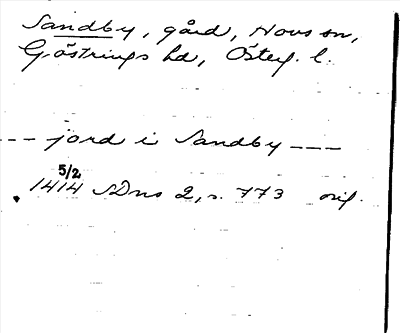 Sandby, gård, Hovs sn,
Göstrings hd, Österg. l.
--- jord i Sandby ---
5/2
1414 SDns 2, s. 773 orig.